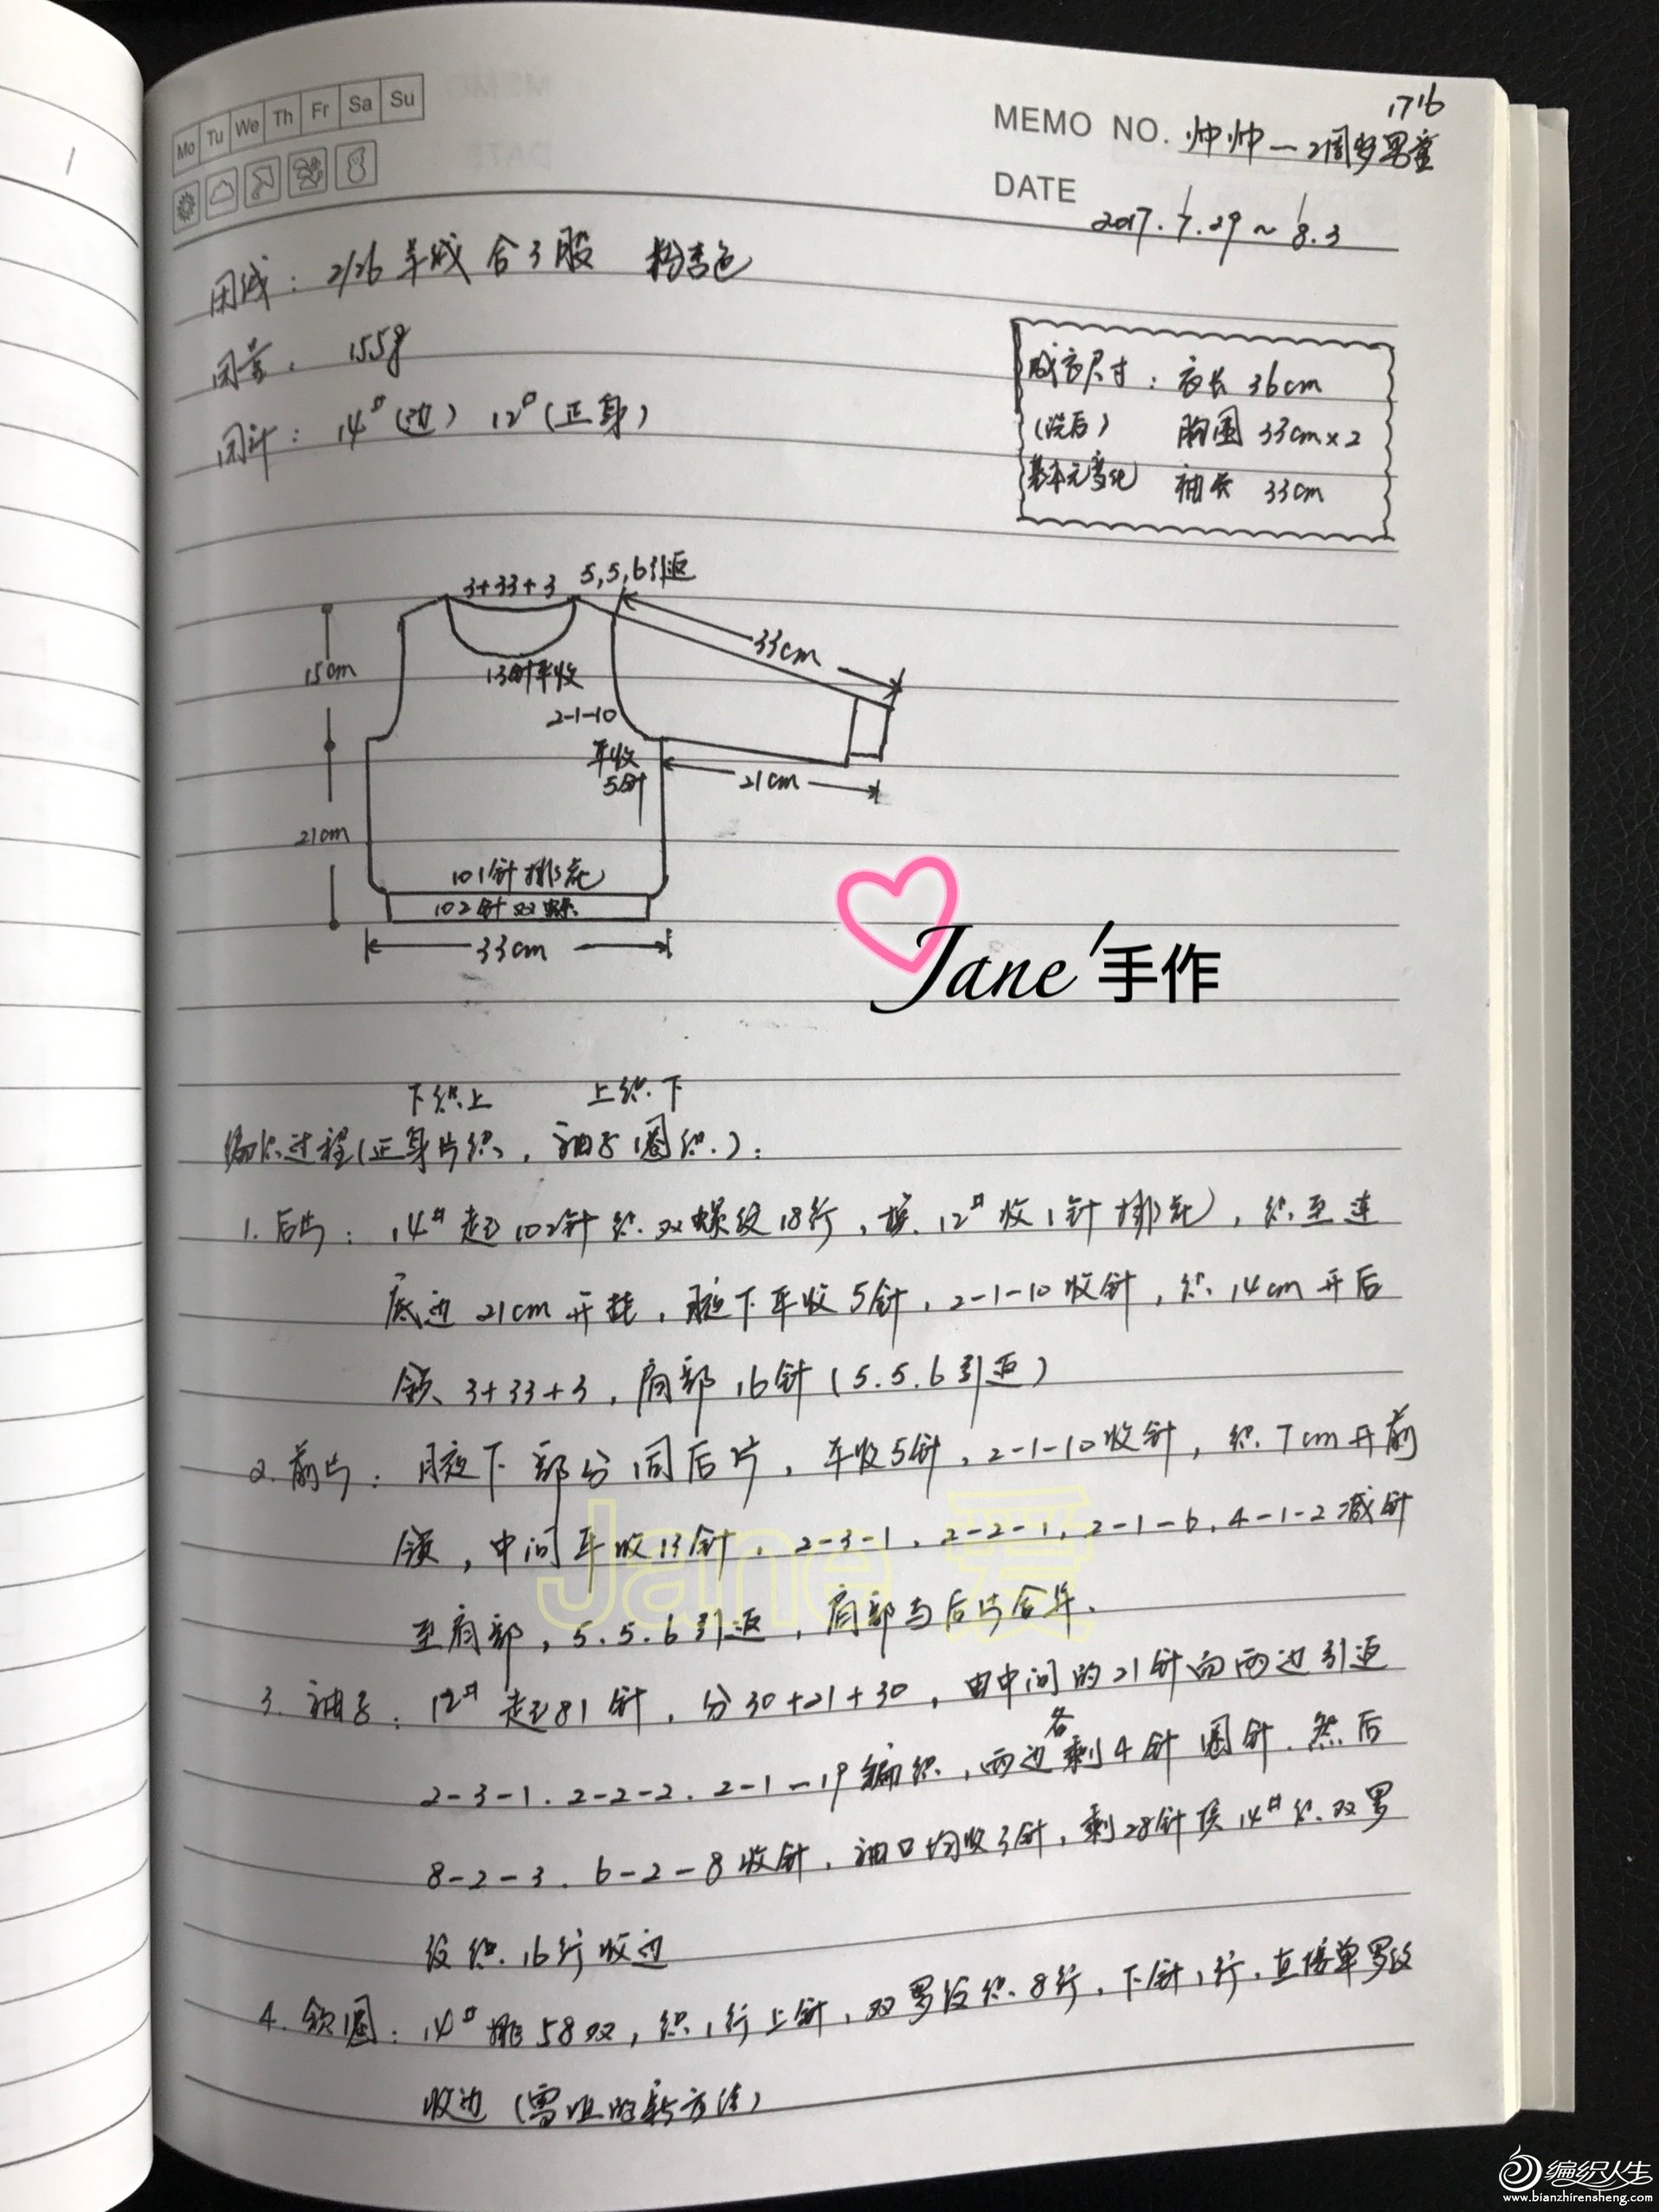 Mo Tu We Th Fr Sa Su
1716
MEMO NO. 帅帅一2周多男童
DATE 2017.7.29~8.3
用线：2/26羊绒 合3股 粉杏色
用量：155g
用针：14#(边) 12#(正身)
成衣尺寸：衣长 36cm
(洗后) 胸围 33cm×2
基本无变化 袖长 33cm
3+33+3 5,5,6引返
33cm
15cm
13针平收
2-1-10
平收
5针
21cm
21cm
101针排花
102针双螺
33cm
Jane'手作
下织上 上织下
编织过程(正身片织，袖子圈织)：
1. 后片：14#起102针织双螺纹18行，换12#收1针排花，织至连
底边21cm开挂，腋下平收5针，2-1-10收针，织14cm开后
领3+33+3，肩部16针(5.5.6引返)
2. 前片：腋下部分同后片，平收5针，2-1-10收针，织7cm开前
领，中间平收13针，2-3-1，2-2-1，2-1-6，4-1-2减针
至肩部，5.5.6引返，肩部与后片合并。
Jane 爱
3. 袖子：12#起81针，分30+21+30，由中间的21针向两边引返
2-3-1．2-2-2．2-1-19编织，两边各剩4针圈针．然后
8-2-3．6-2-8收针，袖口均收3针，剩28针换14#织双罗
纹织16行收边
4. 领圈：14#挑58双，织1行上针，双罗纹织8行，下针1行，直接单罗纹
收边(雪姐的新方法)
编织人生
www.bianzhirensheng.com